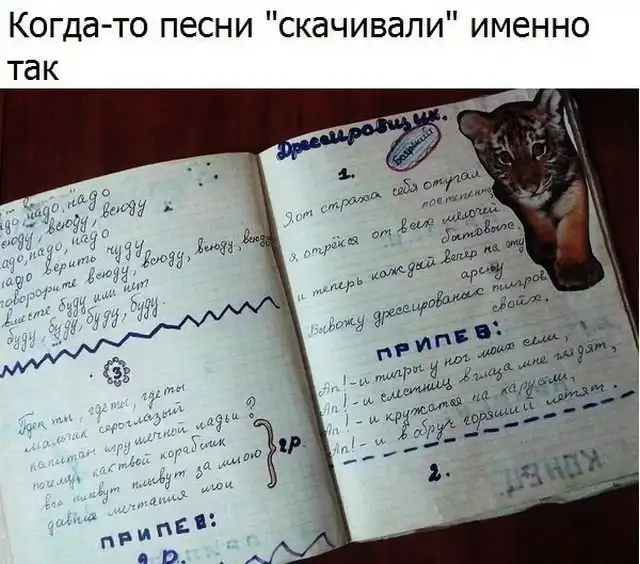 Когда-то песни "скачивали" именно
так
надо, надо, надо
всюду, всюду, всюду
надо, надо, надо
надо верить чуду
говорорите всюду, всюду, всюду, всюду
вместе буду или нет
буду, буду, буду, буду.
3
где ты, где ты
мальчик сероглазый
капитан игрушечной ладьи?
почему твой кораблик
все плывут плывут за мною
давние мечтания мои
2р.
ПРИПЕВ:
2 р.
Дрессировщик.
Боярский
1.
Я от страха себя отучал
постепенно,
я отрёкся от всех мелочей
бытовых.
и теперь каждый вечер на эту
арену
Вывожу дрессированых тигров
своих.
ПРИПЕВ:
Ап! - и тигры у ног моих сели,
Ап! - и с лестниц в глаза мне глядят,
Ап! - и кружатся на карусели,
Ап! - и в обруч горящий летят.
2.